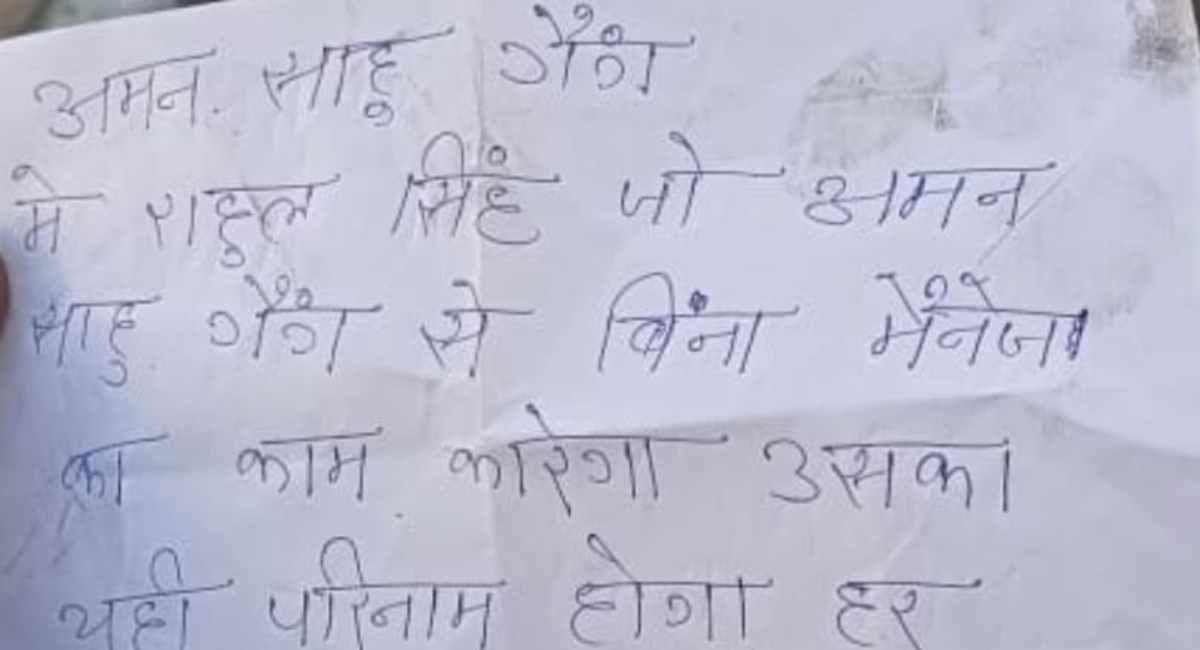 अमन. साहु गैंग
मे राहुल सिंह जो अमन
साहु गैंग से बिंना मैंनेजा
का काम कारेगा उसका
यही परिनाम होगा हर